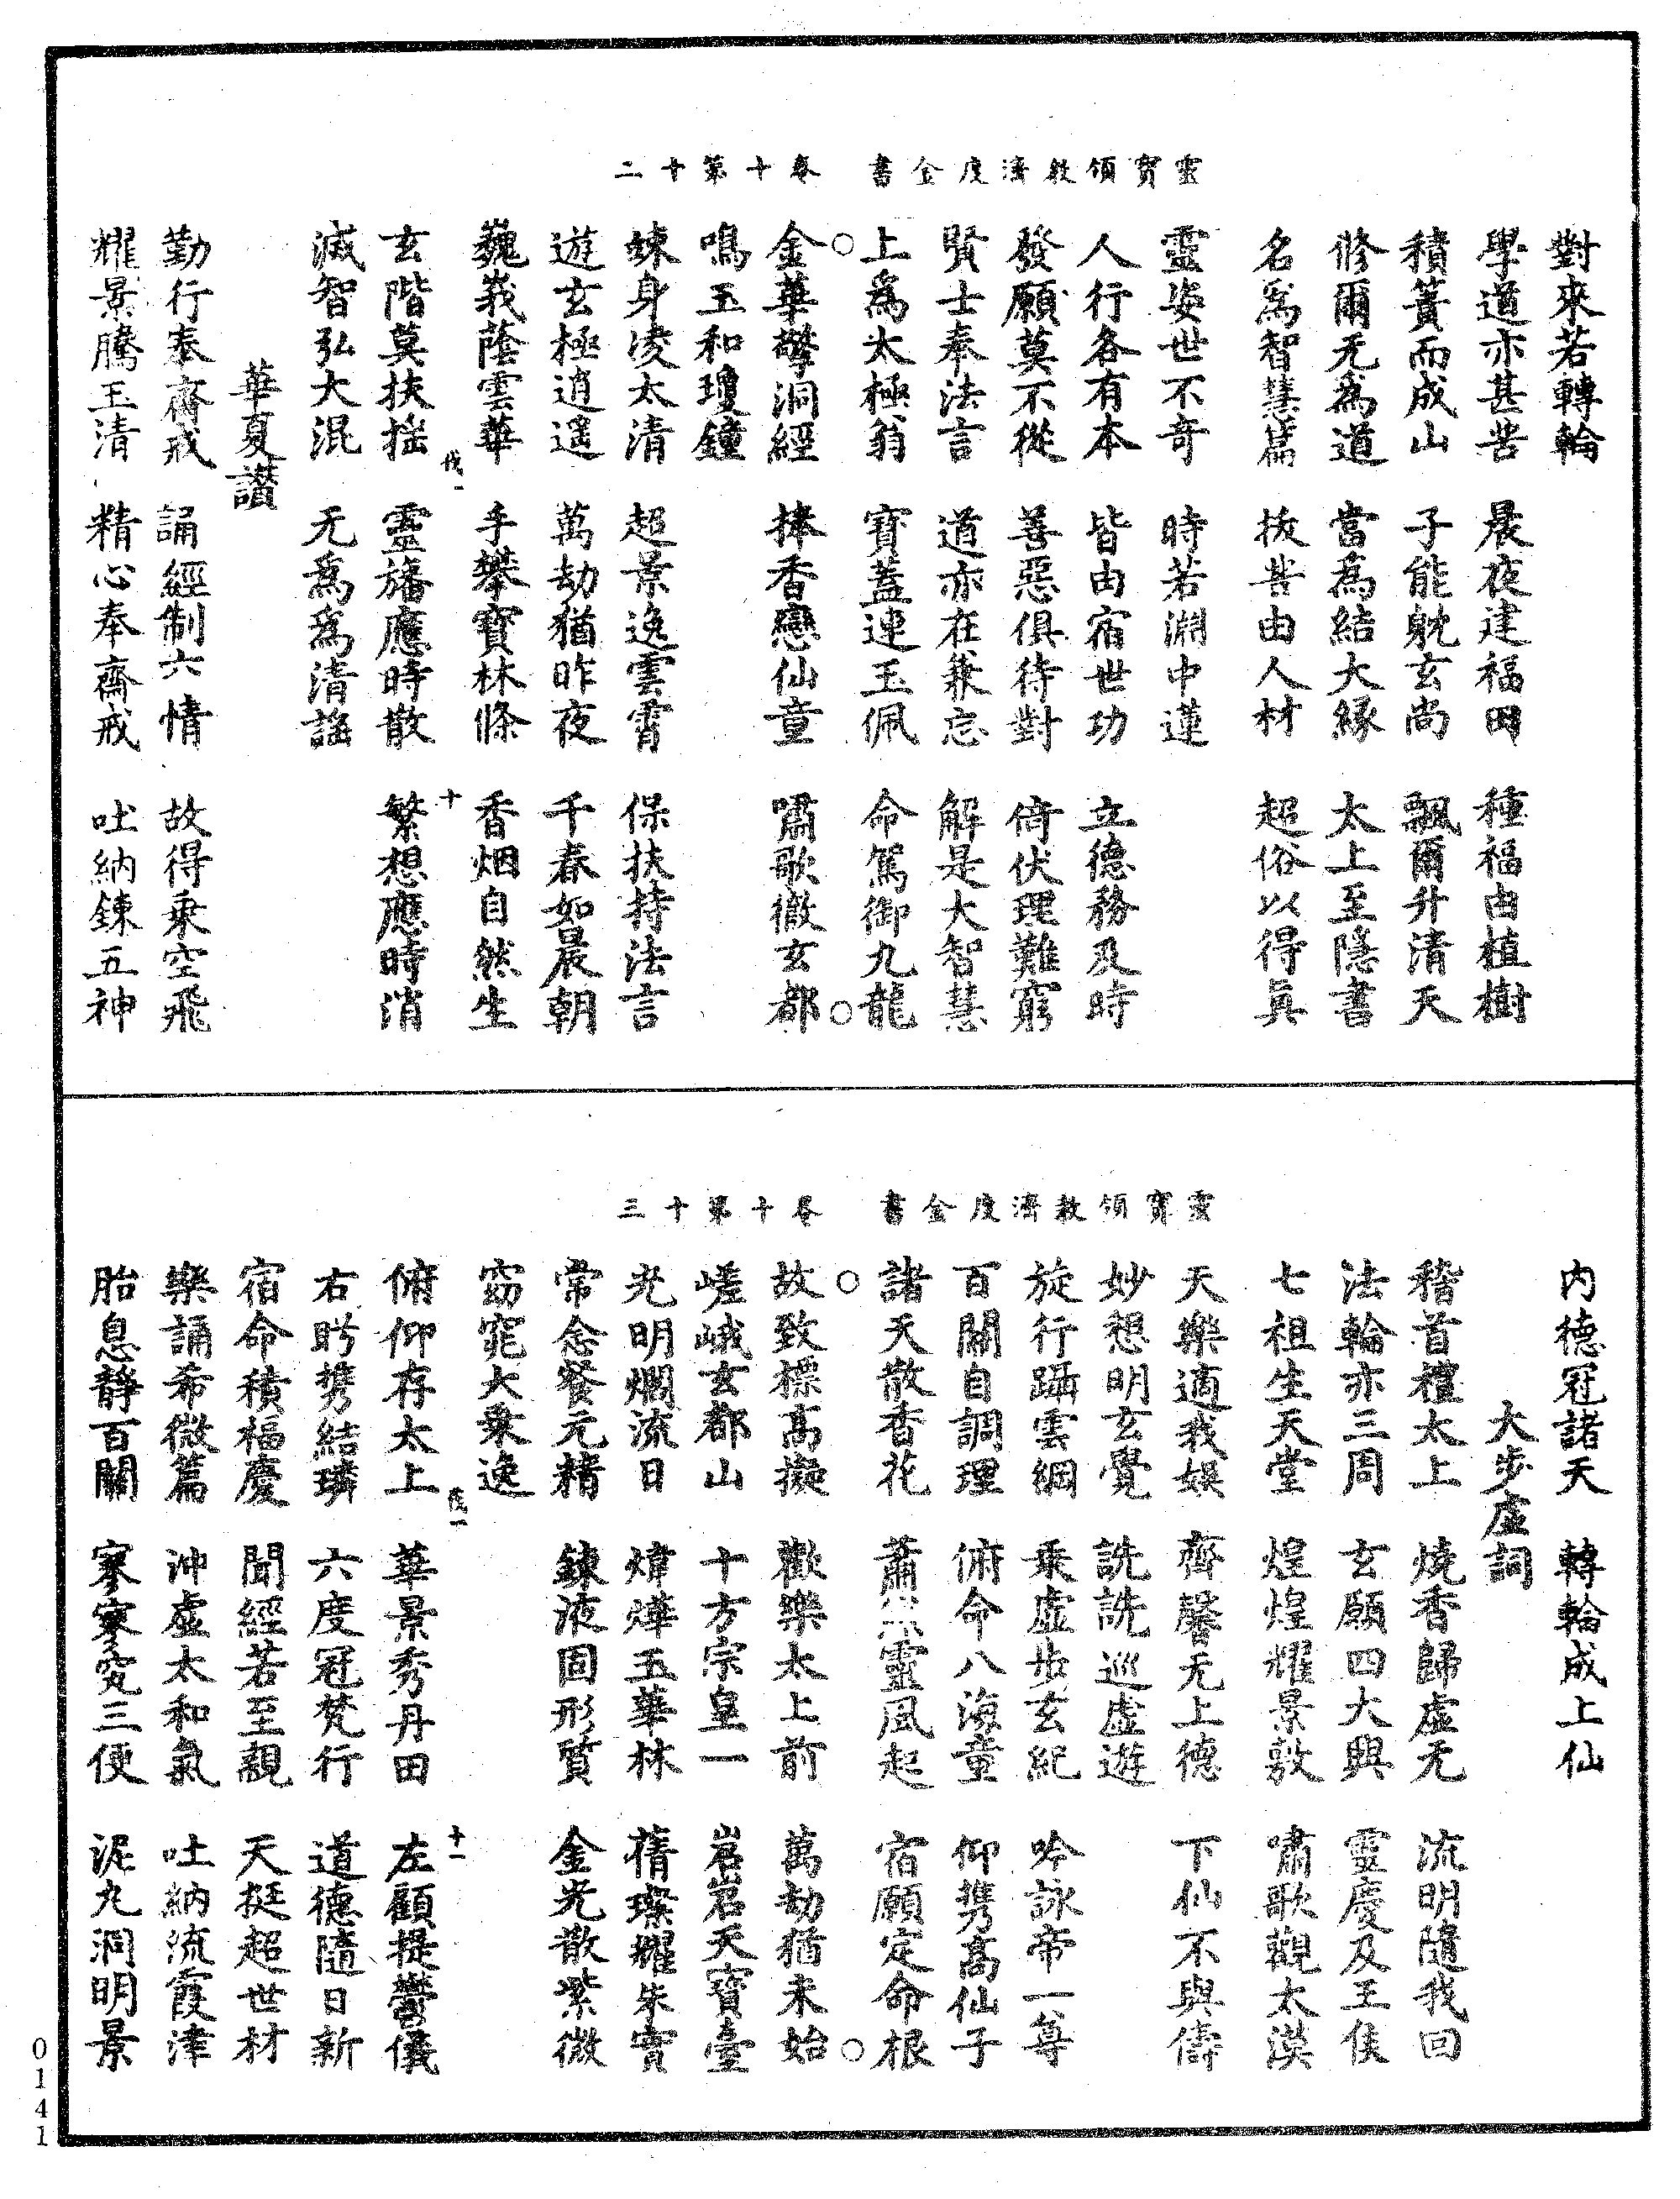 靈寶領教濟度金書　卷十第十二
對來若轉輪
學道亦甚苦　晨夜建福田　種福由植樹
積簣而成山　子能躭玄尚　飄爾升清天
修爾无為道　當為結大緣　太上至隱書
名爲智慧篇　拔苦由人材　超俗以得眞
靈姿世不奇　時若淵中蓮
人行各有本　皆由宿世功　立德務及時
發願莫不從　善惡俱待對　倚伏理難窮
賢士奉法言　道亦在兼忘　解是大智慧
上爲太極翁　寶蓋連玉佩　命駕御九龍
○　○
金華擎洞經　捧香戀仙童　嘯歌徹玄都
鳴玉和瓊鐘
竦身凌太清　超景逸雲霄　保扶持法言
遊玄極逍遥　萬劫猶昨夜　千春如晨朝
巍峩蔭雲華　手攀寶林條　香烟自然生
一　十
玄階莫扶揺　靈旛應時散　繁想應時消
滅智弘大混　无爲爲清謡
華夏讃
勤行奉齋戒　誦經制六情　故得乗空飛
耀景騰玉清　精心奉齋戒　吐納鍊五神
靈寶領教濟度金書　卷十第十三
内德冠諸天　轉輪成上仙
大步虛詞
稽首禮太上　燒香歸虛无　流明隨我回
法輪亦三周　玄願四大興　靈慶及王侯
七祖生天堂　煌煌耀景敷　嘯歌觀太漠
天樂適我娛　齊馨无上德　下仙不與儔
妙想明玄覺　詵詵巡虛遊
旋行躡雲綱　乗虛步玄紀　吟詠帝一尊
百關自調理　俯命八海童　仰携高仙子
諸天散香花　蕭然靈風起　宿願定命根
○　○
故致標高擬　歡樂太上前　萬劫猶未始
嵯峨玄都山　十方宗皇一　岧岧天寶臺
光明爛流日　煒燁玉華林　蒨璨耀朱實
常念餐元精　鍊液固形質　金光散紫微
窈窕大乗逸
一　十一
俯仰存太上　華景秀丹田　左顧提鬱儀
右眄携結璘　六度冠梵行　道德隨日新
宿命積福慶　聞經若至親　天挺超世材
樂誦希微篇　沖虛太和氣　吐納流霞津
胎息靜百關　寥寥究三便　泥丸洞明景
0141